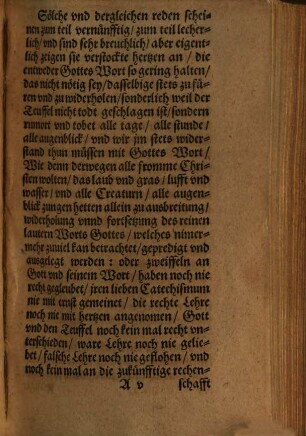 Sölche vnd dergleichen reden schei-
nen zum teil vernünfftig/ zum teil lecher-
lich/ vnd sind sehr breuchlich/ aber eigent-
lich zeigen sie verstockte hertzen an/ die
entweder Gottes Wort so gering halten/
das nicht nötig sey/ dasselbige stets zu fü-
ren vnd zu widerholen/ sonderlich weil der
Teuffel nicht todt geschlagen ist/ sondern
rumort vnd tobet alle tage/ alle stunde/
alle augenblick/ vnd wir jm stets wider-
stand thun müssen mit Gottes Wort/
Wie denn derwegen alle fromme Chri-
sten wolten/ das laub vnd gras/ lufft vnd
wasser/ vnd alle Creatum/ alle augen-
blick zungen hetten allein zu außbreitung/
widerholung vnnd fortsetzung des reinen
lautern Worts Gottes/ welches nimer-
mehr zuuiel kan betrachtet/ gepredigt vnd
ausgelegt werden: oder zweiffeln an
Gott vnd seinem Wort/ haben noch nie
recht gegleubet/ jren lieben Catechismum
nie mit ernst gemeinet/ die rechte Lehre
noch nie mit hertzen angenomen/ Gott
vnd den Teuffel noch kein mal recht vn-
terschieden/ ware Lehre noch nie gelie-
bet/ falsche Lehre noch nie geflohen/ vnd
noch kein mal an die zukünfftige rechen-
A v schafft